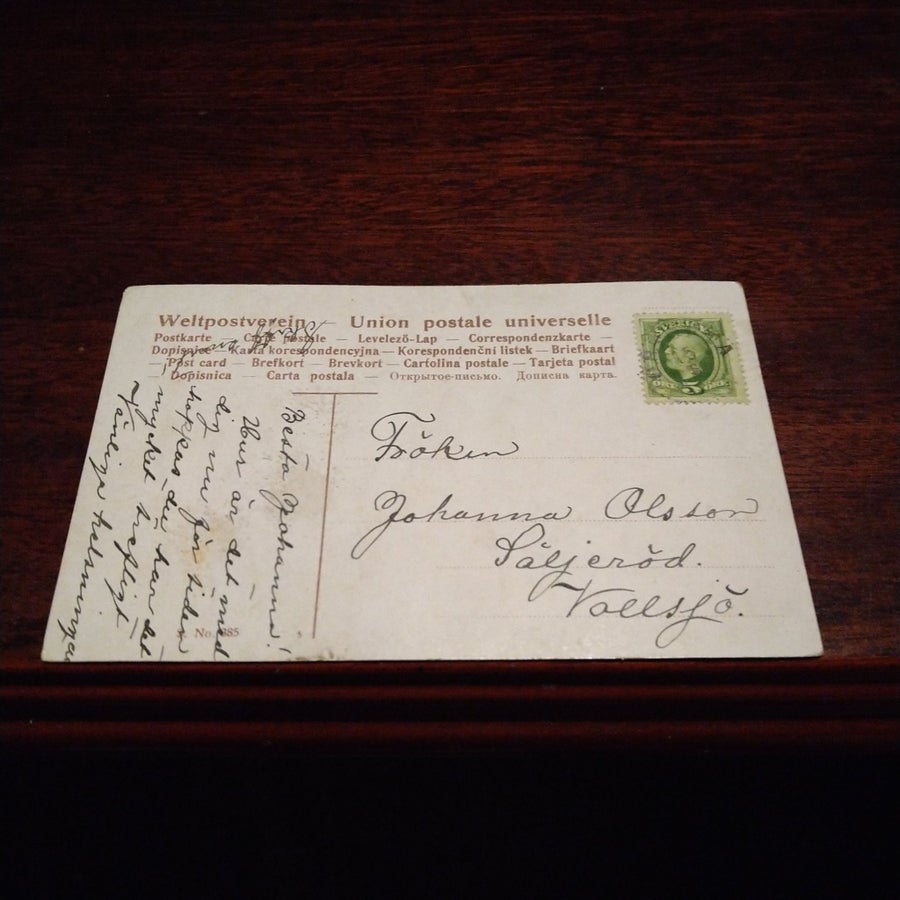 Weltpostverein — Union postale universelle
Postkarte — Carte postale — Levelező-Lap — Correspondenzkarte —
Dopisnice — Karta korespondencyjna — Korespondenčni listek — Briefkaart
— Post card — Brefkort — Brevkort — Cartolina postale — Tarjeta postal
Dopisnica — Carta postala — Открытое письмо. Дописна карта.
SVERIGE
5
Fröken
Johanna Olsson
Säljeröd.
Vollsjö.
Bästa Johanna!
Hur är det med
dig nu för tiden
hoppas du har det
mycket trefligt
Vänliga helsningar